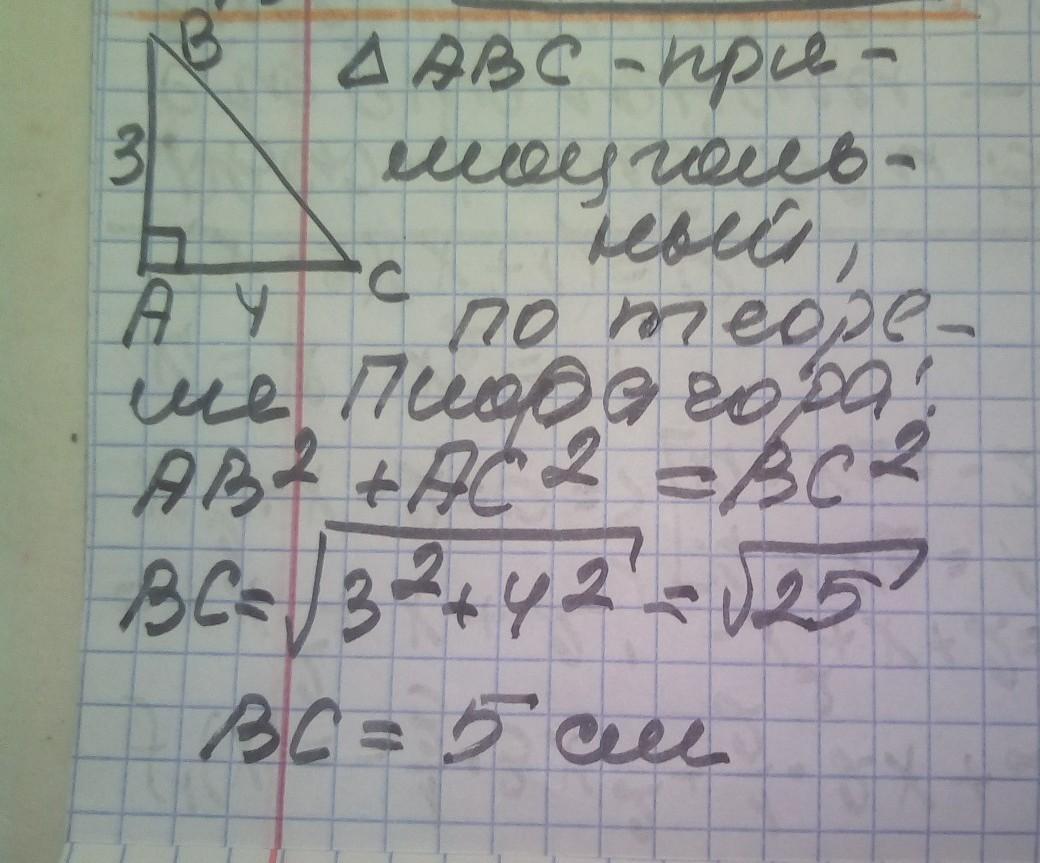 B
△ ABC - пря-
3
моуголь-
ный,
A 4 C
по теоре-
ме Пифагора:
AB² + AC² = BC²
BC = √3² + 4² = √25
BC = 5 см